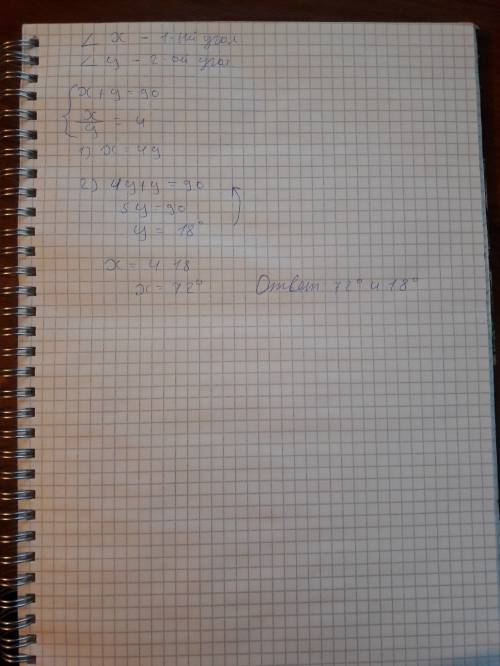 ∠ x - 1-ый угол
∠ y - 2-ой угол
{ x + y = 90
x/y = 4
1) x = 4y
2) 4y + y = 90
5y = 90
y = 18°
x = 4 · 18
x = 72°
Ответ 72° и 18°